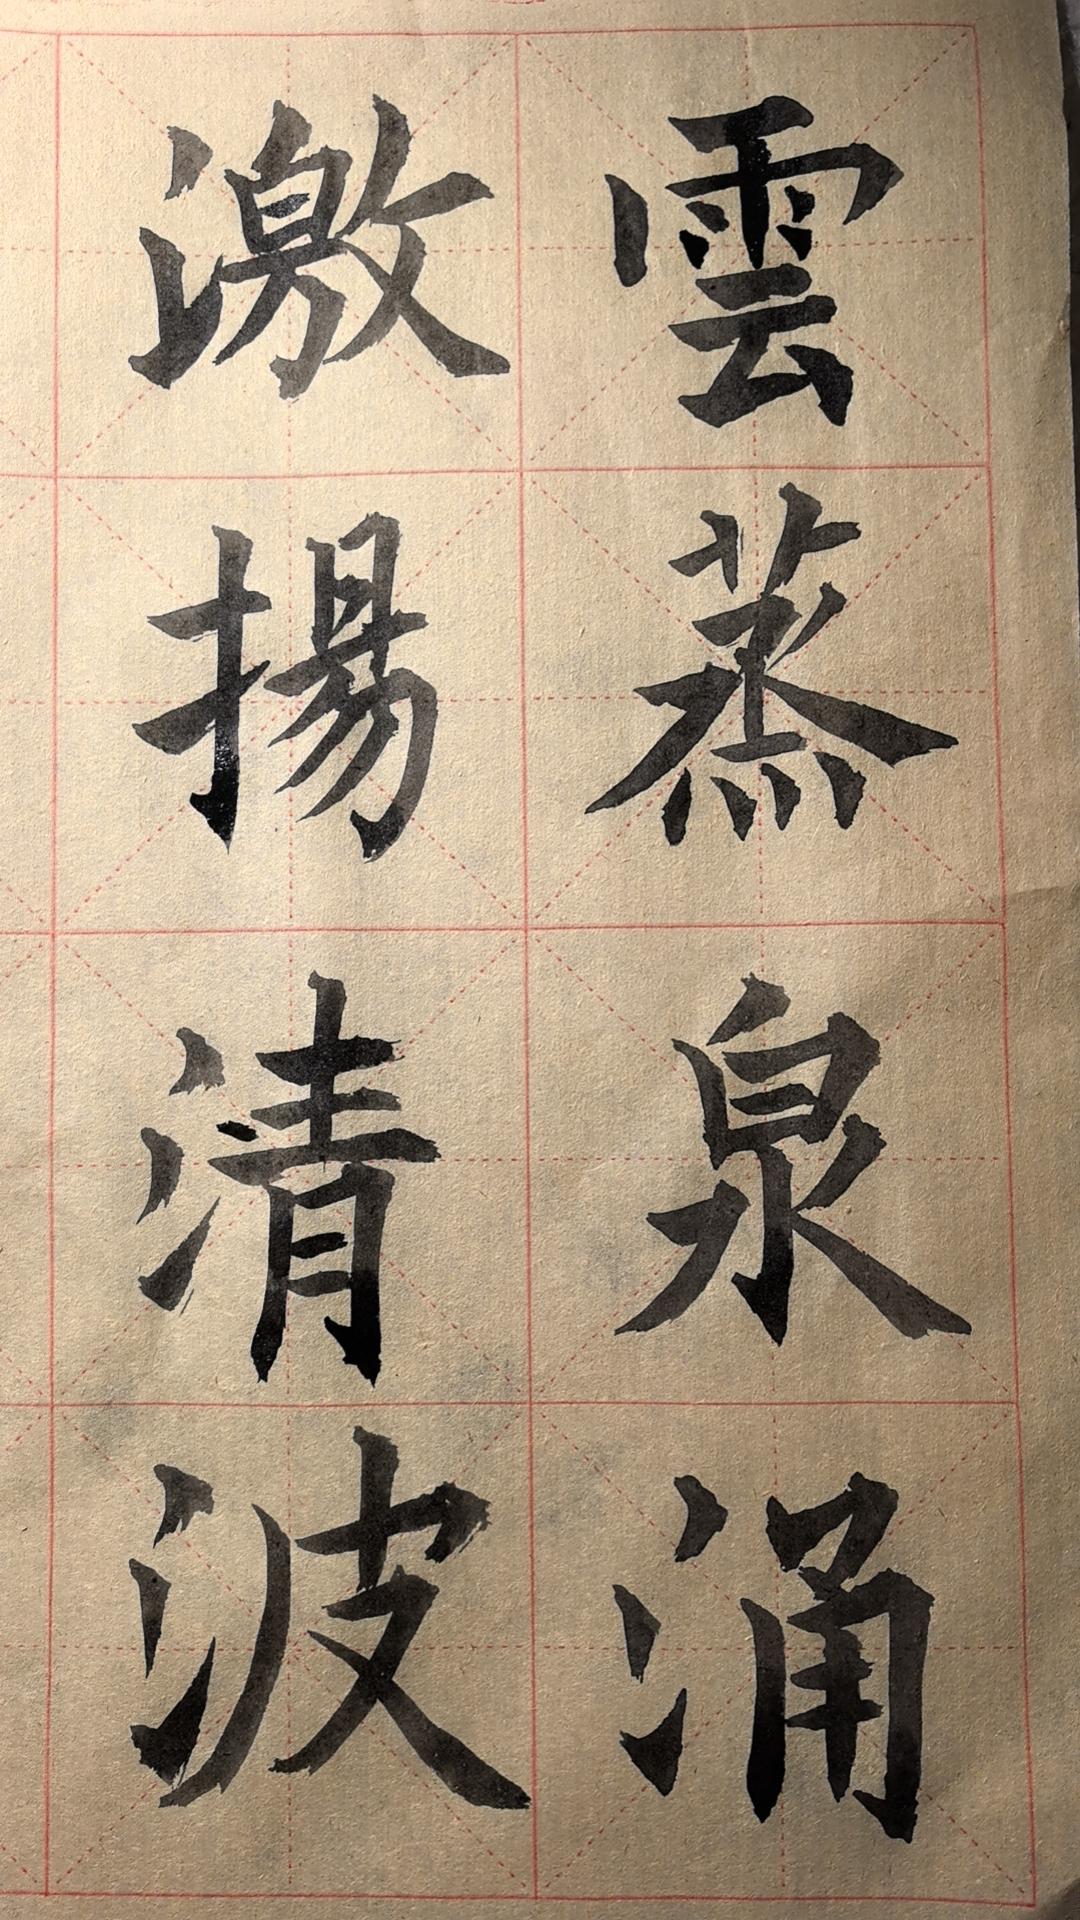 雲蒸泉涌
激揚清波